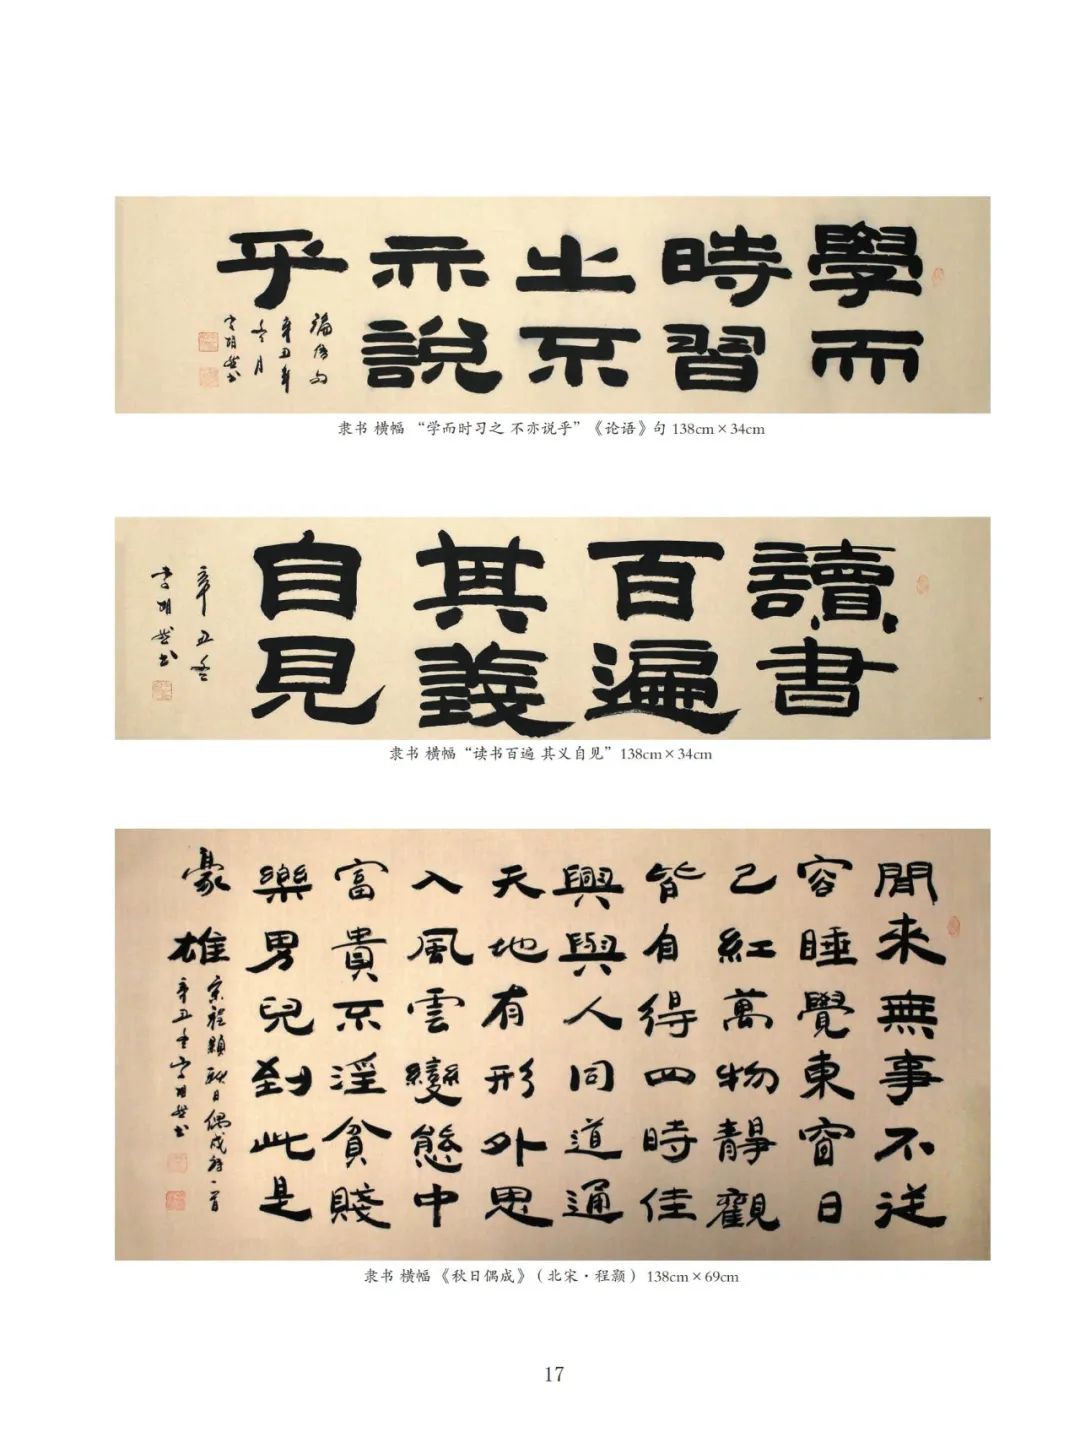 學而
時習
之不
亦說
乎
論語句
辛丑年
冬月
隶书 横幅 “学而时习之 不亦说乎”《论语》句 138cm×34cm
讀書
百遍
其義
自見
辛丑冬
隶书 横幅“读书百遍 其义自见”138cm×34cm
閒來無事不從
容睡覺東窗日
已紅萬物靜觀
皆自得四時佳
興與人同道通
天地有形外思
入風雲變態中
富貴不淫貧賤
樂男兒到此是
豪雄
宋程顥秋日偶成詩一首
辛丑冬
隶书 横幅《秋日偶成》（北宋·程颢） 138cm×69cm
17